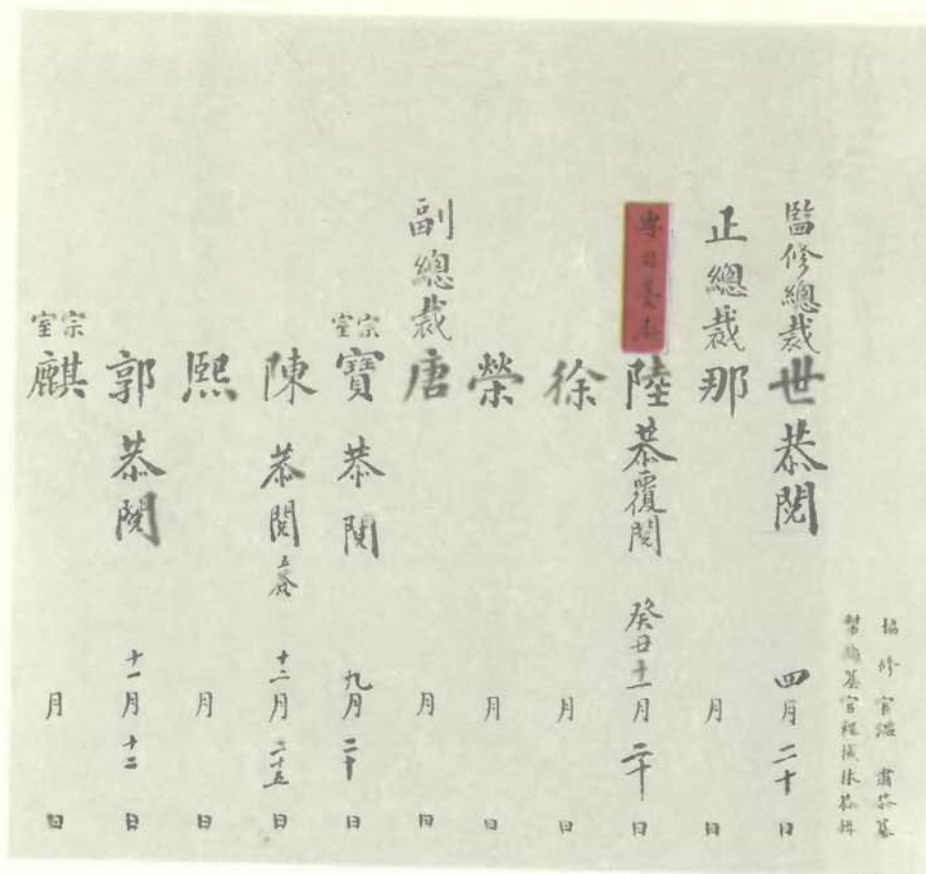 協修官 肅恭纂
幫 纂官程 林恭辦
監修總裁世恭閱 四月二十日
正總裁那 月 日
陸恭覆閱 癸丑十一月二十日
徐 月 日
榮 月 日
副總裁唐 月 日
宗室寶恭閱 九月二十日
陳恭閱 五簽 十二月二十五日
熙 月 日
郭恭閱 十一月十二日
宗室麒 月 日